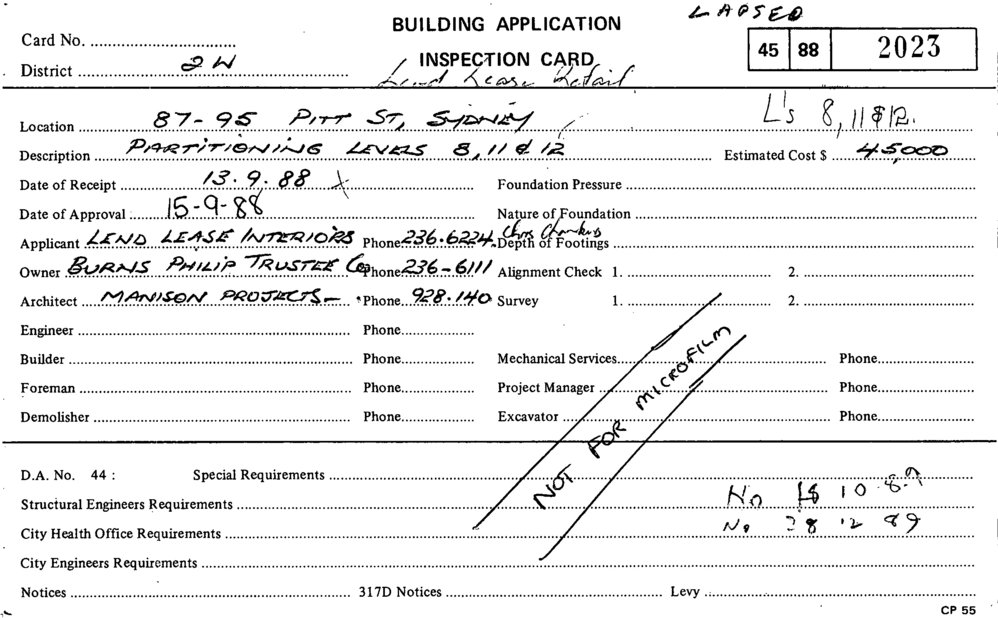 LAPSED
BUILDING APPLICATION
Card No.
INSPECTION CARD
45 88 2023
District 2W
Lend Lease Retail
Location 87-95 PITT ST, SYDNEY L's 8, 11 & 12.
Description PARTITIONING LEVELS 8, 11 & 12 Estimated Cost $ 45,000
Date of Receipt 13.9.88 Foundation Pressure
Date of Approval 15-9-88 Nature of Foundation
Applicant LEND LEASE INTERIORS Phone 236.6224 Chris Depth of Footings
Owner BURNS PHILIP TRUSTEE Co Phone 236-6111 Alignment Check 1. 2.
Architect MANISON PROJECTS Phone 928.140 Survey 1. 2.
Engineer Phone
Builder Phone Mechanical Services Phone
Foreman Phone Project Manager Phone
Demolisher Phone Excavator Phone
NOT FOR MICROFILM
D.A. No. 44 : Special Requirements
Structural Engineers Requirements No 18 10 89
City Health Office Requirements No 28 12 89
City Engineers Requirements
Notices 317D Notices Levy
CP 55